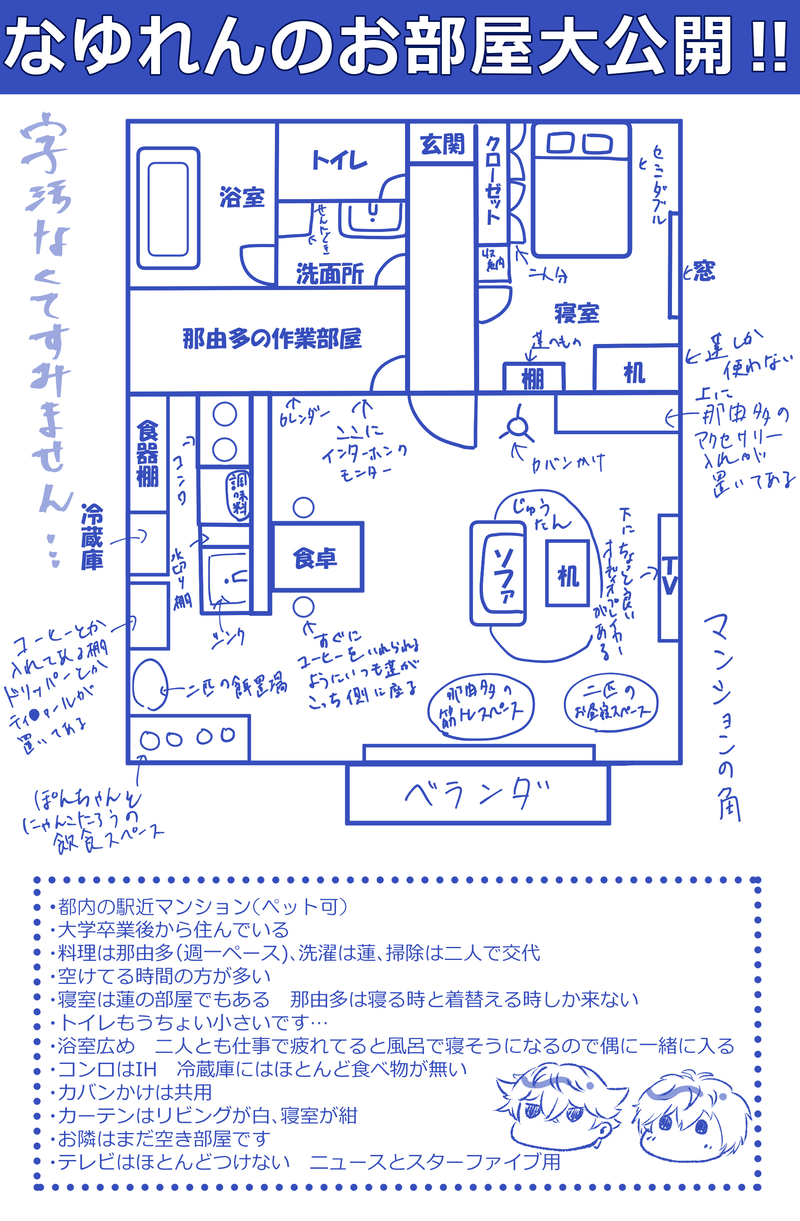 なゆれんのお部屋大公開!!
字汚なくてすみません…
浴室
トイレ
せんたくき
洗面所
玄関
クローゼット
収納
二人分
セミダブル
窓
寝室
蓮のもの
棚
机
蓮しか
使わない
那由多の作業部屋
上に
那由多の
アクセサリー
入れが
置いてある
食器棚
コンロ
調味料
カレンダー
ここに
インターホンの
モニター
カバンかけ
冷蔵庫
水切り棚
シンク
食卓
じゅうたん
ソファ
机
下にちょっと良い
オーディオプレイヤー
がある
TV
コーヒーとか
入れてある棚
ドリッパーとか
置いてある
二匹の餌置場
すぐに
コーヒーをいれられる
ようにいつも蓮が
こっち側に座る
那由多の
筋トレスペース
二匹の
お昼寝スペース
マンションの角
ぽんちゃんと
にゃんこたろうの
飲食スペース
ベランダ
・都内の駅近マンション(ペット可)
・大学卒業後から住んでいる
・料理は那由多(週一ペース)、洗濯は蓮、掃除は二人で交代
・空けてる時間の方が多い
・寝室は蓮の部屋でもある　那由多は寝る時と着替える時しか来ない
・トイレもうちょい小さいです…
・浴室広め　二人とも仕事で疲れてると風呂で寝そうになるので偶に一緒に入る
・コンロはIH　冷蔵庫にはほとんど食べ物が無い
・カバンかけは共用
・カーテンはリビングが白、寝室が紺
・お隣はまだ空き部屋です
・テレビはほとんどつけない　ニュースとスターファイブ用